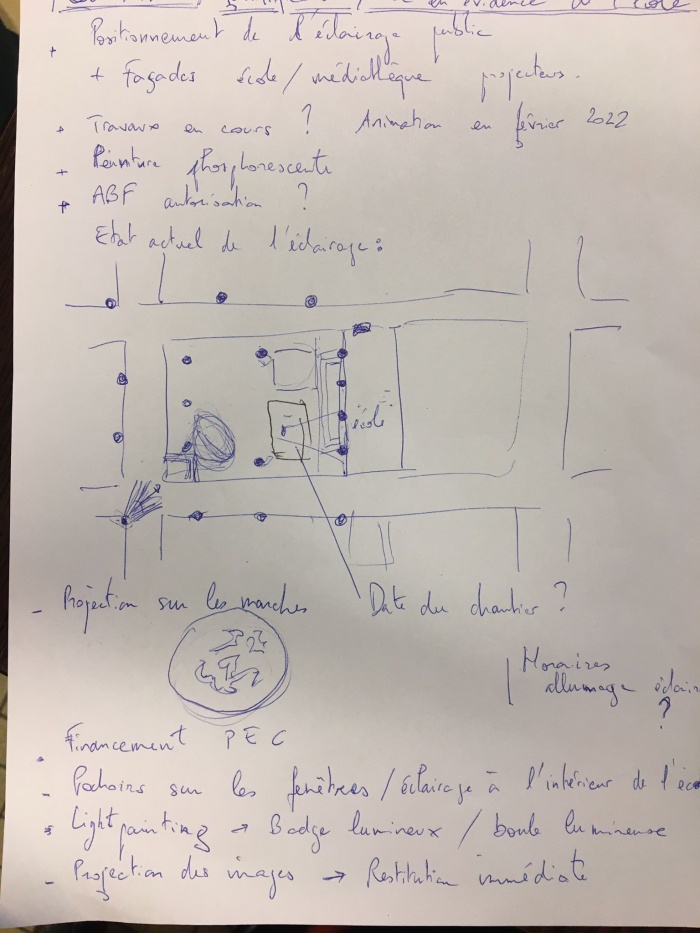 en évidence de l'école
+ Positionnement de l'éclairage public
+ Façades école / médiathèque projecteurs.
+ Travaux en cours ? Animation en février 2022
+ Peinture phosphorescente
+ ABF autorisation ?
Etat actuel de l'éclairage :
école
- Projection sur les marches
Date du chantier ?
Horaires
allumage éclair
?
Financement PEC
- Pochoirs sur les fenêtres / éclairage à l'intérieur de l'éco
Light painting → Badge lumineux / boule lumineuse
- Projection des images → Restitution immédiate